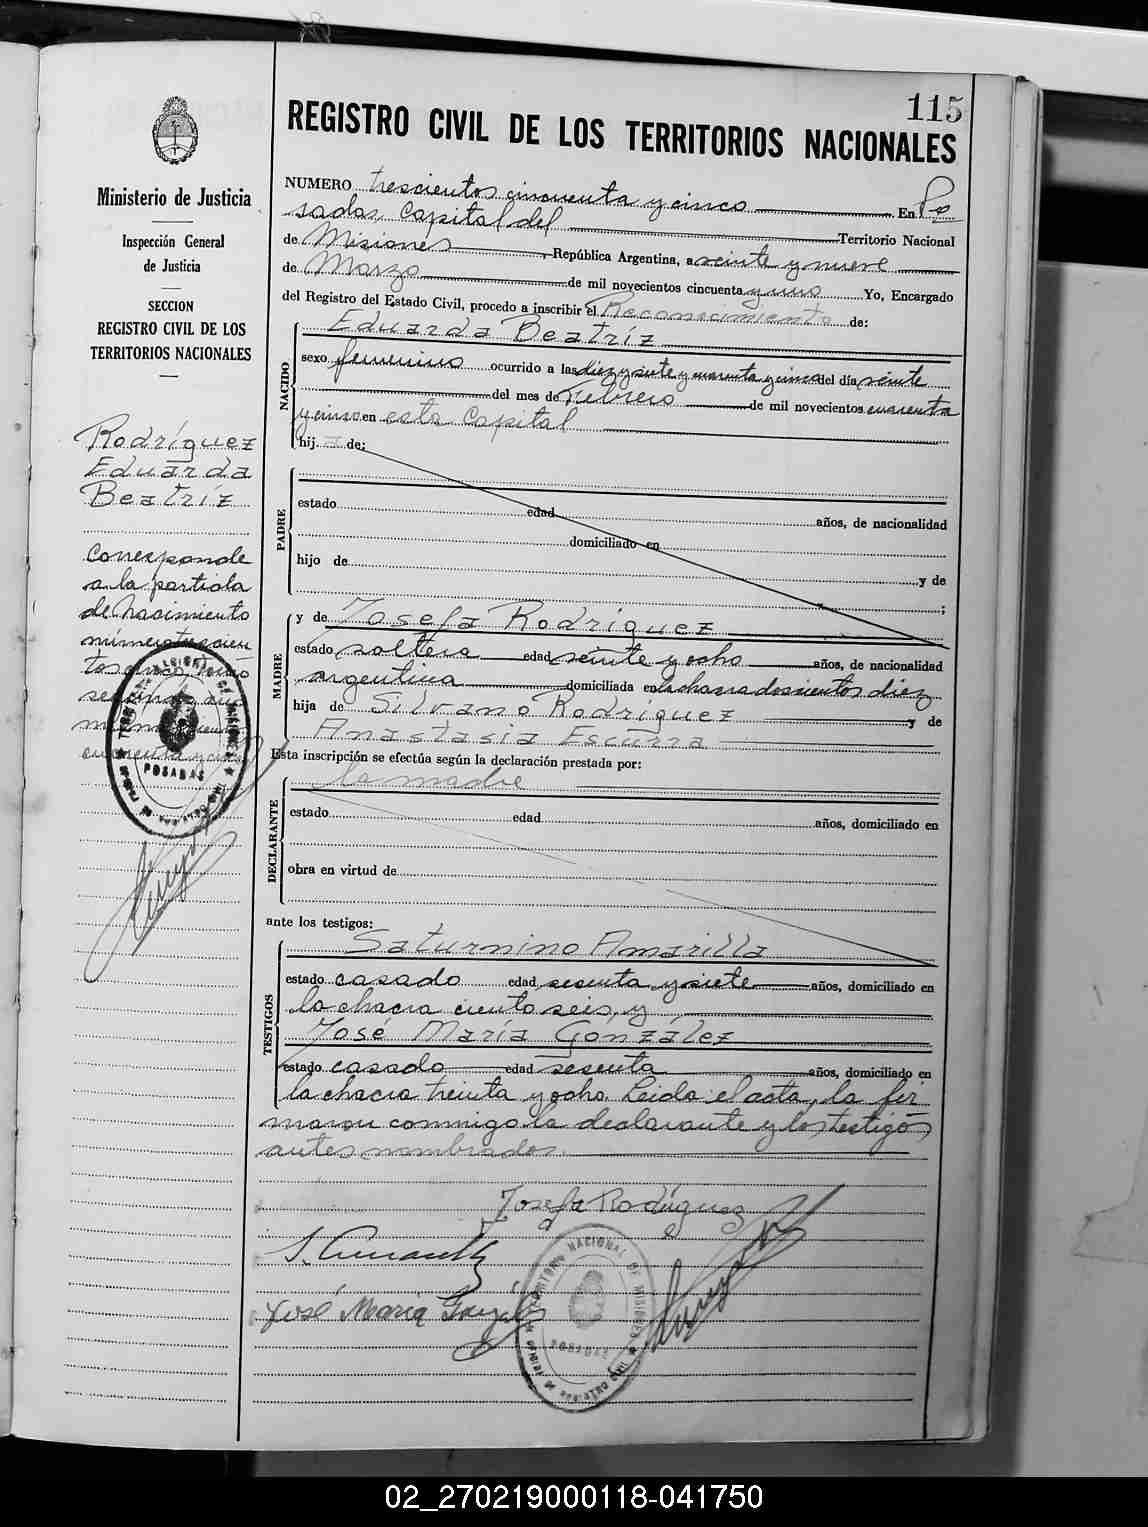 115
REGISTRO CIVIL DE LOS TERRITORIOS NACIONALES
Ministerio de Justicia
Inspección General
de Justicia
SECCION
REGISTRO CIVIL DE LOS
TERRITORIOS NACIONALES
Rodríguez
Eduarda
Beatríz
Corresponde
a la partida
de nacimiento
número trescien
tos
POSADAS
NUMERO trescientos cincuenta y cinco En Po
sadas, Capital del Territorio Nacional
de Misiones, República Argentina, a veinte y nueve
de Marzo de mil novecientos cincuenta y uno Yo, Encargado
del Registro del Estado Civil, procedo a inscribir el Reconocimiento de:
NACIDO
Eduarda Beatríz
sexo femenino ocurrido a las diez y siete y cuarenta y cinco del día veinte
del mes de Febrero de mil novecientos cuarenta
y cinco en esta Capital
hij de:
PADRE
estado edad años, de nacionalidad
domiciliado en
hijo de y de
;
MADRE
y de Josefa Rodríguez
estado soltera edad veinte y ocho años, de nacionalidad
argentina domiciliada en la chacra doscientos diez
hija de Silvano Rodríguez y de
Anastasia Escurra
Esta inscripción se efectúa según la declaración prestada por:
DECLARANTE
la madre
estado edad años, domiciliado en
obra en virtud de
ante los testigos:
TESTIGOS
Saturnino Amarilla
estado casado edad sesenta y siete años, domiciliado en
la chacra ciento seis, y
José María González
estado casado edad sesenta años, domiciliado en
la chacra treinta y ocho. Leida el acta, la fir
maron conmigo la declarante y los testigos
antes nombrados.
Josefa Rodríguez
S. Amarilla
José María González
TERRITORIO NACIONAL DE MISIONES
POSADAS
02_270219000118-041750